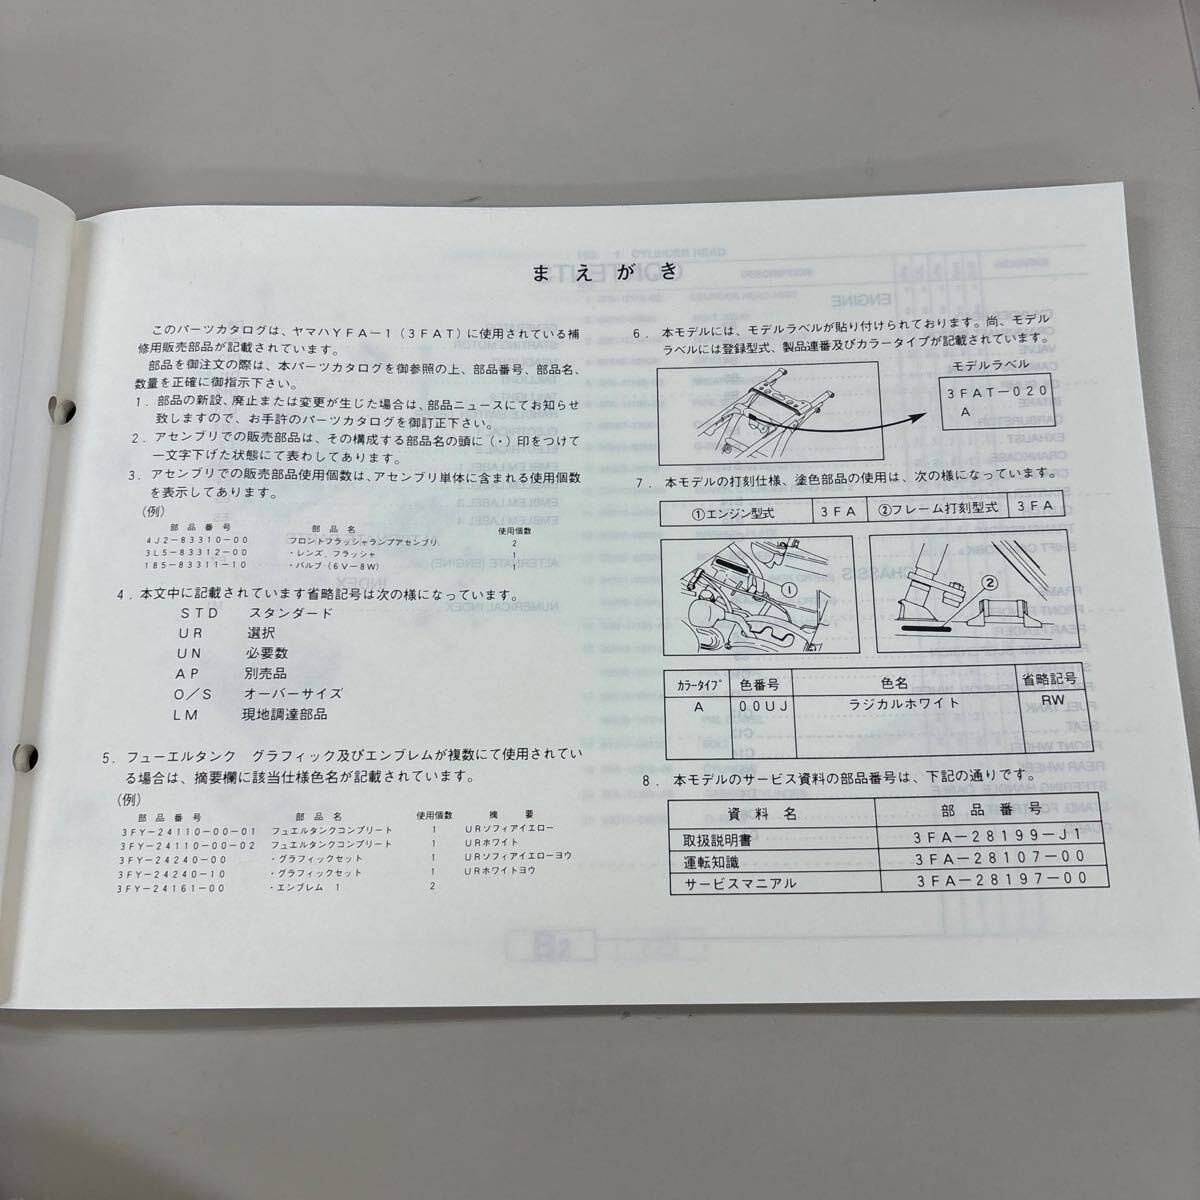 まえがき
このパーツカタログは、ヤマハYFA－1（3FAT）に使用されている補
修用販売部品が記載されています。
部品を御注文の際は、本パーツカタログを御参照の上、部品番号、部品名、
数量を正確に御指示下さい。
1．部品の新設、廃止または変更が生じた場合は、部品ニュースにてお知らせ
致しますので、お手許のパーツカタログを御訂正下さい。
2．アセンブリでの販売部品は、その構成する部品名の頭に（・）印をつけて
一文字下げた状態にて表わしてあります。
3．アセンブリでの販売部品使用個数は、アセンブリ単体に含まれる使用個数
を表示してあります。
（例）
部品番号 部品名 使用個数
4J2－83310－00 フロントフラッシャランプアセンブリ 2
3L5－83312－00 ・レンズ，フラッシャ 1
185－83311－10 ・バルブ（6V－8W） 1
4．本文中に記載されています省略記号は次の様になっています。
STD スタンダード
UR 選択
UN 必要数
AP 別売品
O／S オーバーサイズ
LM 現地調達部品
5．フューエルタンク グラフィック及びエンブレムが複数にて使用されてい
る場合は、摘要欄に該当仕様色名が記載されています。
（例）
部品番号 部品名 使用個数 摘要
3FY－24110－00－01 フュエルタンクコンプリート 1 URソフィアイエロー
3FY－24110－00－02 フュエルタンクコンプリート 1 URホワイト
3FY－24240－00 ・グラフィックセット 1 URソフィアイエローヨウ
3FY－24240－10 ・グラフィックセット 1 URホワイトヨウ
3FY－24161－00 ・エンブレム 1 2
6．本モデルには、モデルラベルが貼り付けられております。尚、モデル
ラベルには登録型式、製品連番及びカラータイプが記載されています。
モデルラベル
3FAT－020
A
7．本モデルの打刻仕様、塗色部品の使用は、次の様になっています。
①エンジン型式 3FA ②フレーム打刻型式 3FA
①
②
ｶﾗｰﾀｲﾌﾟ 色番号 色名 省略記号
A 00UJ ラジカルホワイト RW
8．本モデルのサービス資料の部品番号は、下記の通りです。
資料名 部品番号
取扱説明書 3FA－28199－J1
運転知識 3FA－28107－00
サービスマニアル 3FA－28197－00